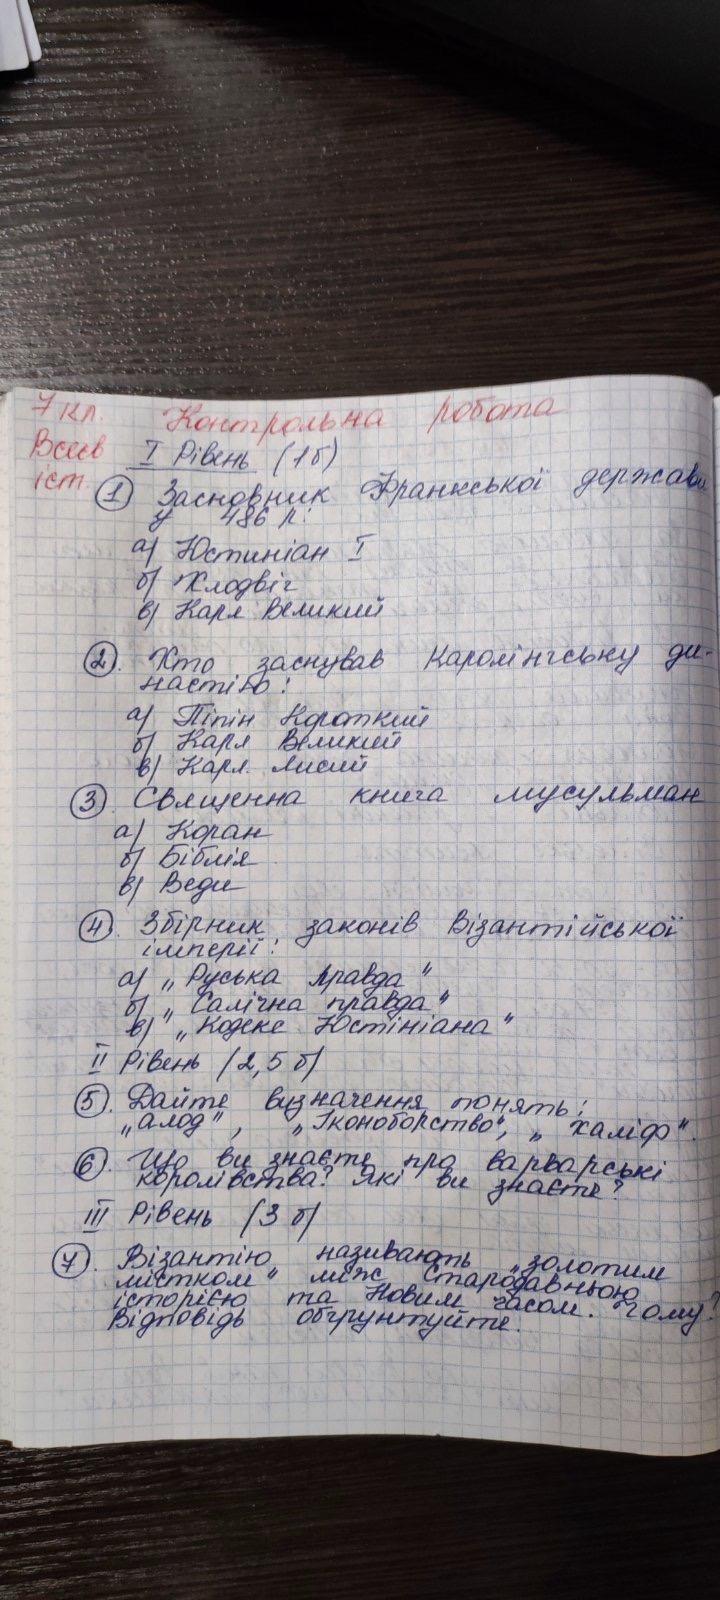 7 кл. Контрольна робота
Всесв I Рівень (1б)
іст.
1 Засновник Франкської держави
у 486 р:
а) Юстиніан I
б) Хлодвіг
в) Карл Великий
2. Хто заснував Каролінгську ди-
настію:
а) Піпін Короткий
б) Карл Великий
в) Карл Лисий
3. Священна книга мусульман
а) Коран
б) Біблія
в) Веди
4. Збірник законів Візантійської
імперії:
а) „Руська правда"
б) „Салічна правда"
в) „Кодекс Юстініана"
II Рівень (2,5 б)
5. Дайте визначення понять:
„алод", „Іконоборство", „халіф".
6. Що ви знаєте про варварські
королівства? Які ви знаєте?
III Рівень (3 б)
7. Візантію називають „золотим
містком" між Стародавньою
історією та Новим часом. Чому?
Відповідь обгрунтуйте.